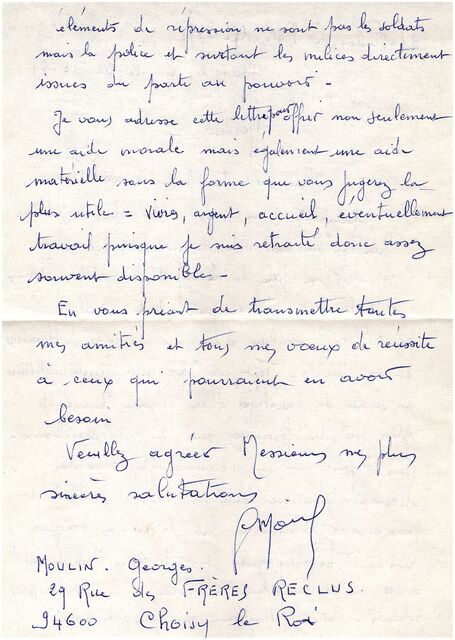 éléments de répression ne sont pas les soldats
mais la police et surtout les milices directement
issues du parti au pouvoir -
Je vous adresse cette lettre pour offrir non seulement
une aide morale mais également une aide
matérielle sous la forme que vous jugerez la
plus utile = vivres, argent, accueil, éventuellement
travail puisque je suis retraité donc assez
souvent disponible -
En vous priant de transmettre toutes
mes amitiés et tous mes vœux de réussite
à ceux qui pourraient en avoir
besoin
Veuillez agréer Messieurs mes plus
sincères salutations
MOULIN. Georges.
29 Rue des FRÈRES RECLUS.
94600 Choisy le Roi